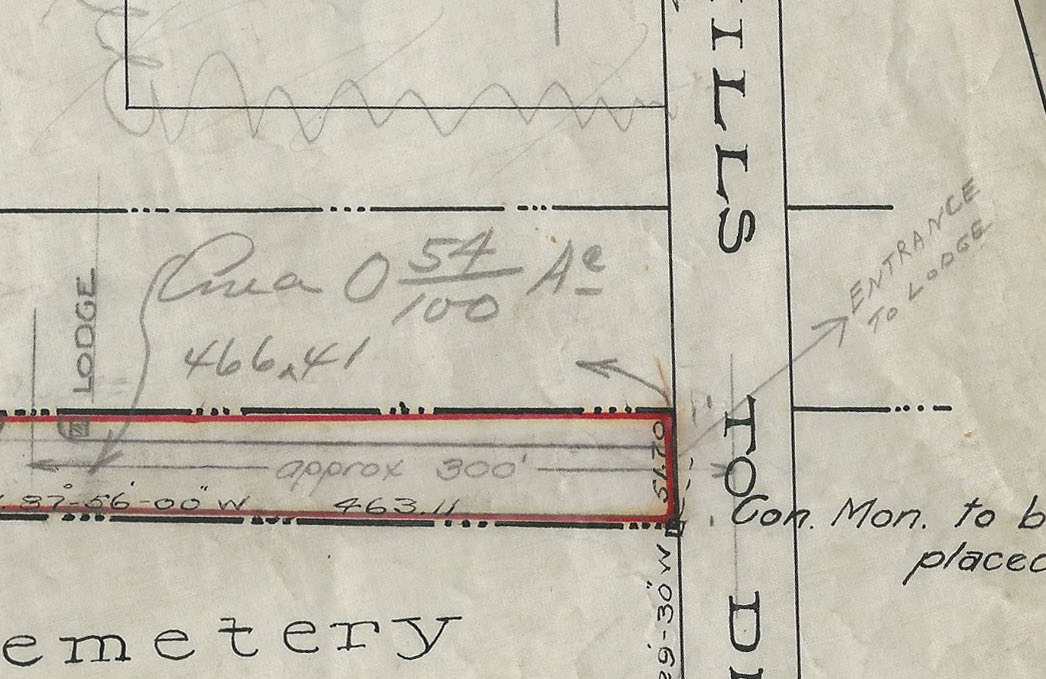 ILLS
ENTRANCE
TO LODGE
Area 0 54/100 Ac
LODGE
466.41
TO
51.70
approx 300'
87°-56'-00" W 463.11
Con. Mon. to b
placed
29'-30" W
D
emetery